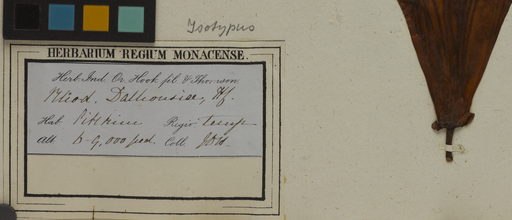 Isotypus
HERBARIUM REGIUM MONACENSE.
Herb. Ind. Or. Hook fil. & Thomson
Rhod. Dalhousiae, Hf.
Hab. Sikkim Regio temp.
Alt. 6-9,000 ped. Coll. J.D.H.